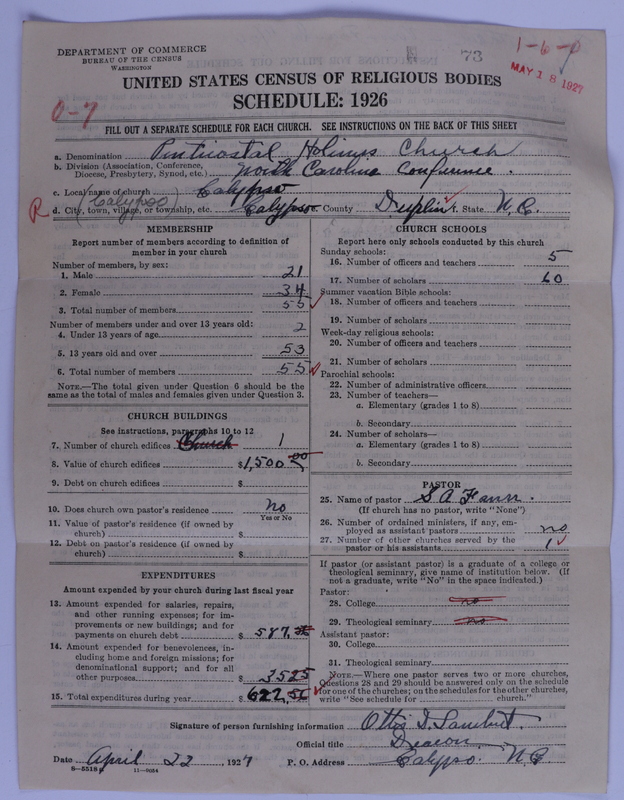 DEPARTMENT OF COMMERCE
BUREAU OF THE CENSUS
WASHINGTON
73
1-6-p
MAY 18 1927
UNITED STATES CENSUS OF RELIGIOUS BODIES
SCHEDULE: 1926
0-7
FILL OUT A SEPARATE SCHEDULE FOR EACH CHURCH. SEE INSTRUCTIONS ON THE BACK OF THIS SHEET
a. Denomination Penticostal Holines Church
b. Division (Association, Conference, Diocese, Presbytery, Synod, etc.) North Carolina Conference.
c. Local name of church Calypso
(Calypso)
R d. City, town, village, or township, etc. Calypso e. County Duplin f. State N.C.
MEMBERSHIP
Report number of members according to definition of
member in your church
Number of members, by sex:
1. Male 21
2. Female 34
3. Total number of members 55
Number of members under and over 13 years old:
4. Under 13 years of age 2
5. 13 years old and over 53
6. Total number of members 55
NOTE.—The total given under Question 6 should be the
same as the total of males and females given under Question 3.
CHURCH BUILDINGS
See instructions, paragraphs 10 to 12
7. Number of church edifices Church 1
8. Value of church edifices $1,500.00
9. Debt on church edifices $
10. Does church own pastor's residence No
Yes or No
11. Value of pastor's residence (if owned by
church) $
12. Debt on pastor's residence (if owned by
church) $
EXPENDITURES
Amount expended by your church during last fiscal year
13. Amount expended for salaries, repairs,
and other running expenses; for im-
provements or new buildings; and for
payments on church debt $ 587,
14. Amount expended for benevolences, in-
cluding home and foreign missions; for
denominational support; and for all
other purposes $ 3525
15. Total expenditures during year $ 622,
CHURCH SCHOOLS
Report here only schools conducted by this church
Sunday schools:
16. Number of officers and teachers 5
17. Number of scholars 60
Summer vacation Bible schools:
18. Number of officers and teachers
19. Number of scholars
Week-day religious schools:
20. Number of officers and teachers
21. Number of scholars
Parochial schools:
22. Number of administrative officers
23. Number of teachers—
a. Elementary (grades 1 to 8)
b. Secondary
24. Number of scholars—
a. Elementary (grades 1 to 8)
b. Secondary
PASTOR
25. Name of pastor S A Fann.
(If church has no pastor, write "None")
26. Number of ordained ministers, if any, em-
ployed as assistant pastors no
27. Number of other churches served by the
pastor or his assistants 1
If pastor (or assistant pastor) is a graduate of a college or
theological seminary, give name of institution below. (If
not a graduate, write "No" in the space indicated.)
Pastor:
28. College no
29. Theological seminary no
Assistant pastor:
30. College
31. Theological seminary
NOTE.—Where one pastor serves two or more churches,
Questions 28 and 29 should be answered only on the schedule
for one of the churches; on the schedules for the other churches,
write "See schedule for church."
Signature of person furnishing information Ottis I. Lambert.
Official title Deacon
Date April 22, 1927 P. O. Address Calypso. N.C.
8—5518 11—9034